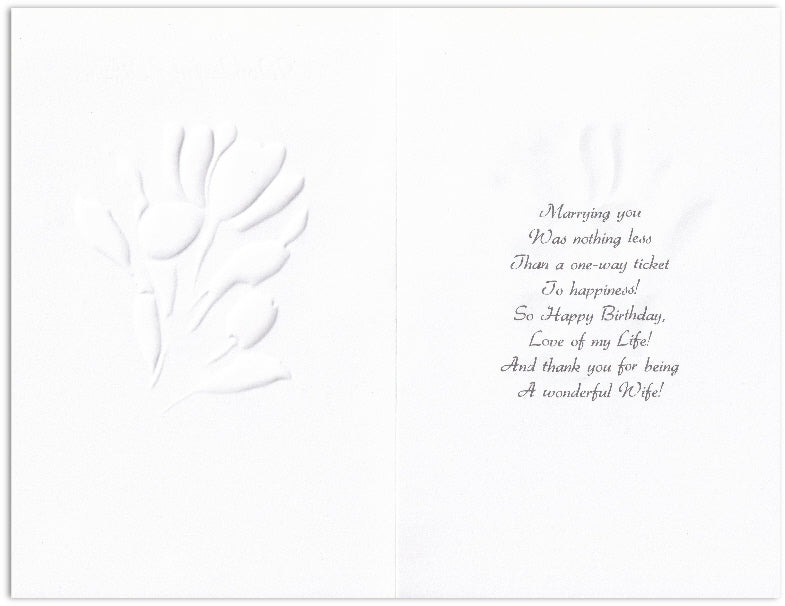 Marrying you
Was nothing less
Than a one-way ticket
To happiness!
So Happy Birthday,
Love of my Life!
And thank you for being
A wonderful Wife!